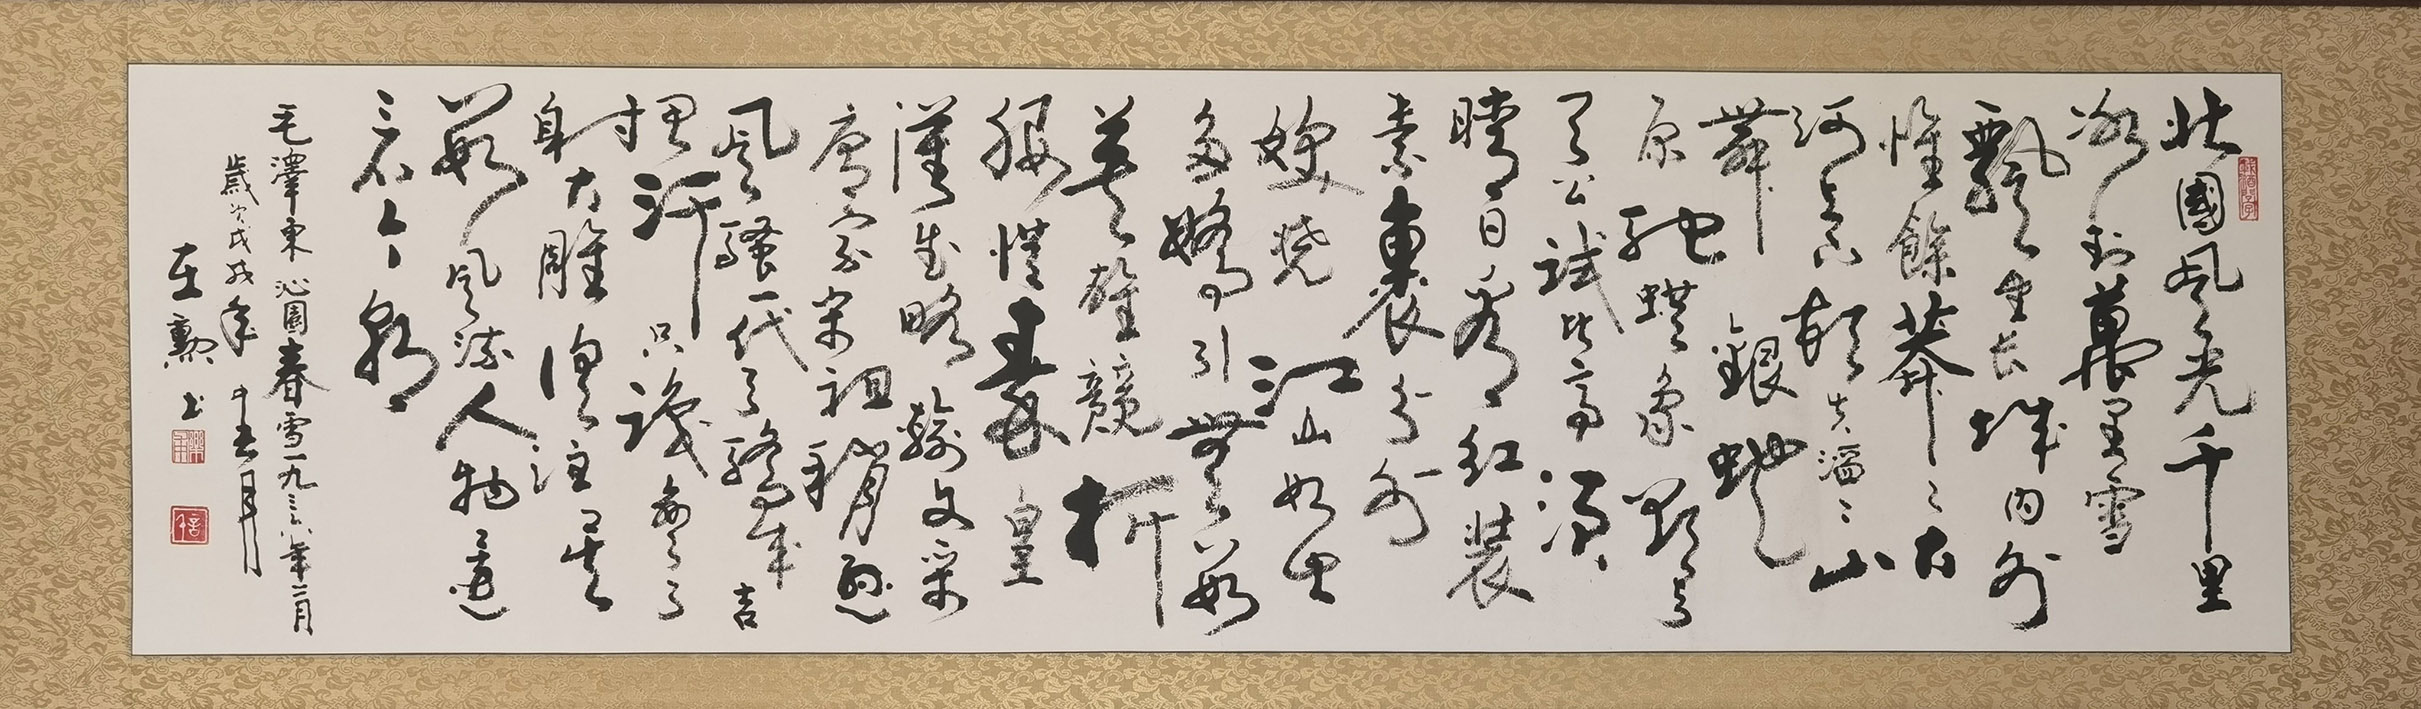 北國風光千里
冰封萬里雪
飄望長城内外
惟餘莽〻大
河上下頓失滔〻山
舞銀蛇
原馳蠟象欲與
天公試比高須
晴日看紅裝
素裹分外
妖嬈江山如此
多嬌引無數
英雄競折
腰惜秦皇
漢武略輸文采
唐宗宋祖稍遜
風騷一代天驕成吉
思汗只識彎弓
射大雕俱往矣
數風流人物還
看今朝
毛澤東沁園春雪一九三六年二月
歲次戊戌年月
在勳書
信